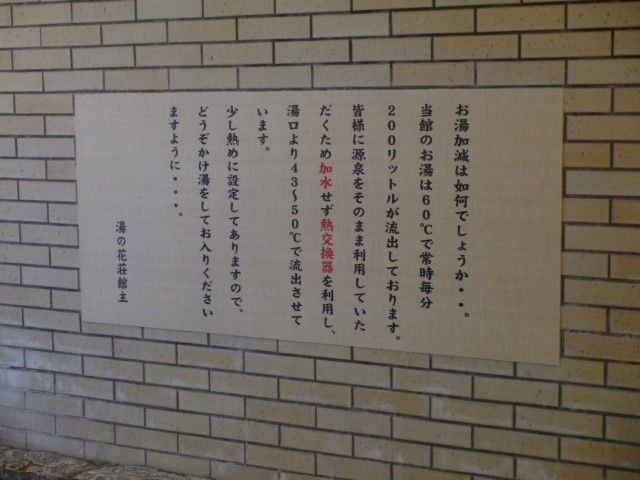 お湯加減は如何でしょうか・・。
当館のお湯は60℃で常時毎分
200リットルが流出しております。
皆様に源泉をそのまま利用していた
だくため加水せず熱交換器を利用し、
湯口より43～50℃で流出させて
います。
少し熱めに設定してありますので、
どうぞかけ湯をしてお入りください
ますように・・・。
湯の花荘館主